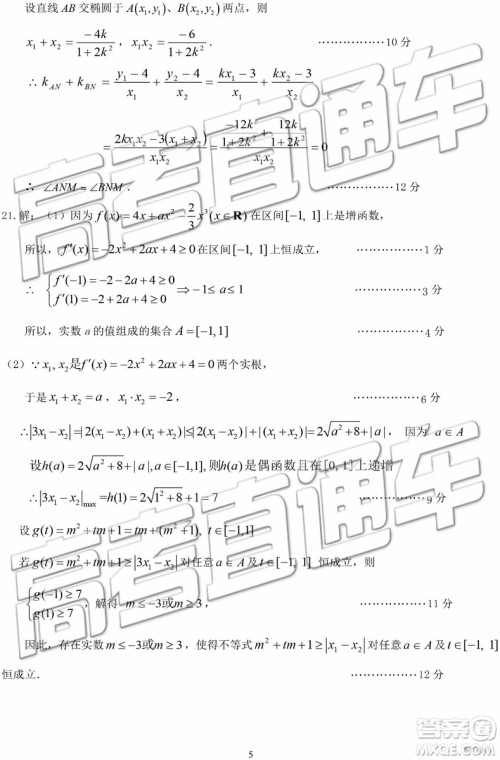 设直线 AB 交椭圆于 A(x₁,y₁)、B(x₂,y₂) 两点，则
x₁ + x₂ = −4k/(1+2k²)，x₁x₂ = −6/(1+2k²). ……………10 分
∴ k_AN + k_BN = (y₁−4)/x₁ + (y₂−4)/x₂ = (kx₁−3)/x₁ + (kx₂−3)/x₂
= (2kx₁x₂−3(x₁+x₂))/(x₁x₂) = (−12k/(1+2k²) + 12k/(1+2k²))/(x₁x₂) = 0
∴ ∠ANM = ∠BNM. ……………12 分
21.解：（1）因为 f(x) = 4x + ax² − (2/3)x³(x∈R) 在区间[−1, 1] 上是增函数，
所以，f′(x) = −2x² + 2ax + 4 ≥ 0 在区间[−1, 1]上恒成立， ……………1 分
∴ {f′(−1) = −2−2a+4 ≥ 0 f′(1) = −2+2a+4 ≥ 0 ⇒ −1 ≤ a ≤ 1 ……………3 分
所以，实数 a 的值组成的集合 A = [−1,1] ……………4 分
（2）∵ x₁, x₂是f′(x) = −2x² + 2ax + 4 = 0 两个实根，
于是 x₁ + x₂ = a，x₁·x₂ = −2， ……………6 分
∴|3x₁−x₂| = |2(x₁−x₂)+(x₁+x₂)| ≤ |2(x₁−x₂)|+|(x₁+x₂)| = 2√(a²+8)+|a|， 因为 a∈A
设h(a) = 2√(a²+8)+|a|, a∈[−1,1], 则h(a) 是偶函数且在[0, 1]上递增
∴|3x₁−x₂|max =h(1) = 2√(1²+8)+1 = 7 ……………9 分
设 g(t) = m²+tm+1 = tm+(m²+1), t∈[−1,1]
若 g(t) = m²+tm+1 ≥ |3x₁−x₂| 对任意 a∈A 及 t∈[−1, 1] 恒成立，则
{g(−1) ≥ 7 g(1) ≥ 7 ，解得 m ≤ −3或m ≥ 3， ……………11 分
因此，存在实数 m ≤ −3或m ≥ 3，使得不等式 m²+tm+1 ≥ |x₁−x₂| 对任意 a∈A 及 t∈[−1, 1]
恒成立. ……………12 分
高考直通车
高考直通车
高考直通车
5